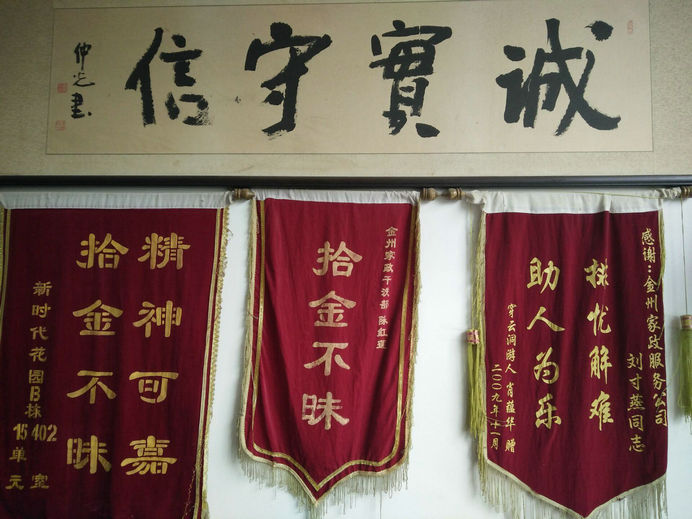 誠實守信
仲光書
感谢:金州家政服务公司
刘寸燕同志
排忧解难
助人为乐
穿云洞游人 肖蕴华 赠
二00九年十一月
金州家政干洗部 陈红莲
拾金不昧
精神可嘉
拾金不昧
新时代花园B栋
15单元402室